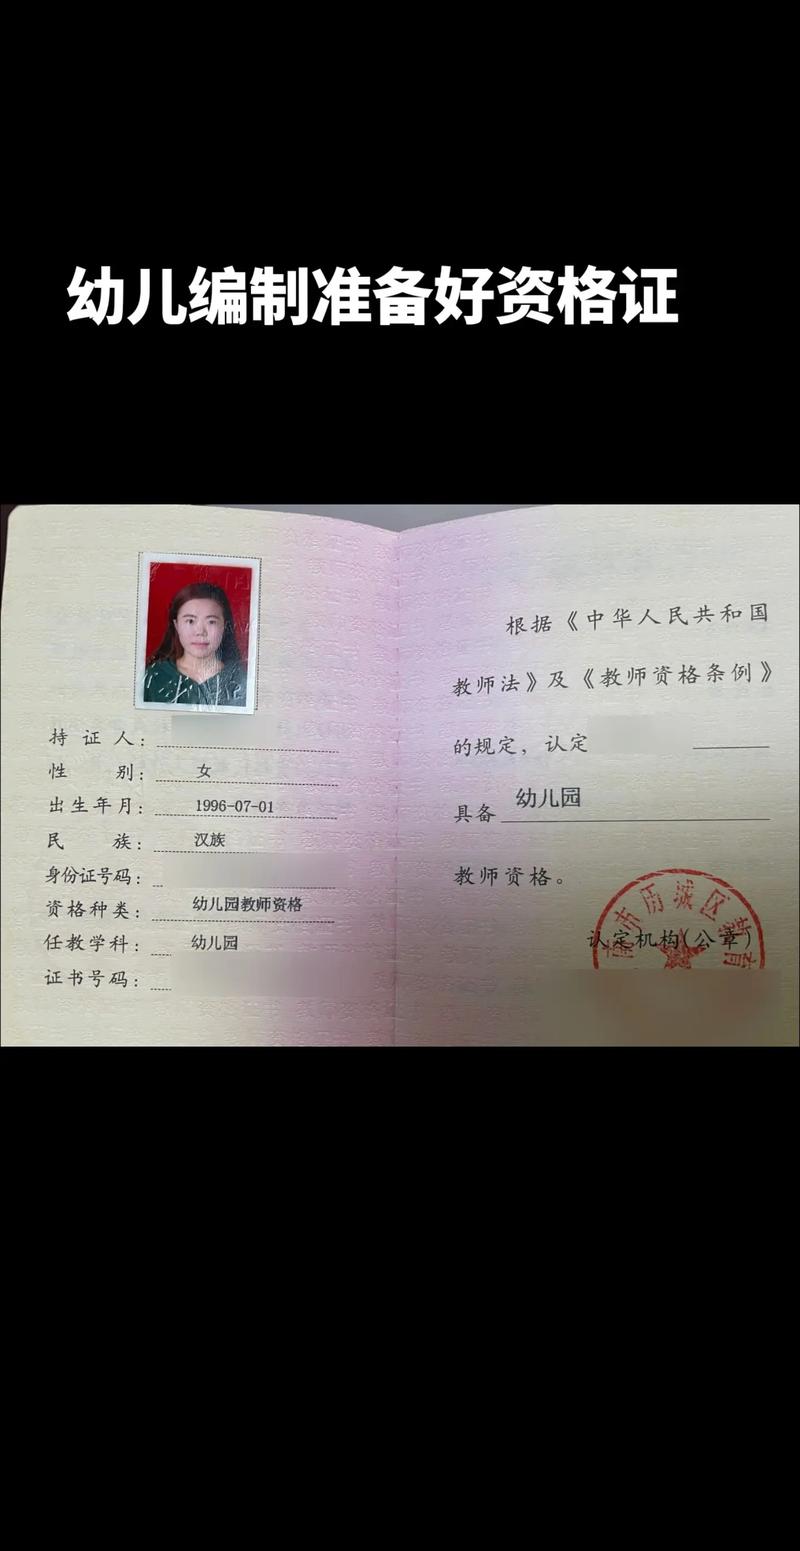 幼儿编制准备好资格证
持证人：
性别：女
出生年月：1996-07-01
民族：汉族
身份证号码：
资格种类：幼儿园教师资格
任教学科：幼儿园
证书号码：
根据《中华人民共和国
教师法》及《教师资格条例》
的规定，认定
具备 幼儿园
教师资格。
市历城区教育
认定机构(公章)